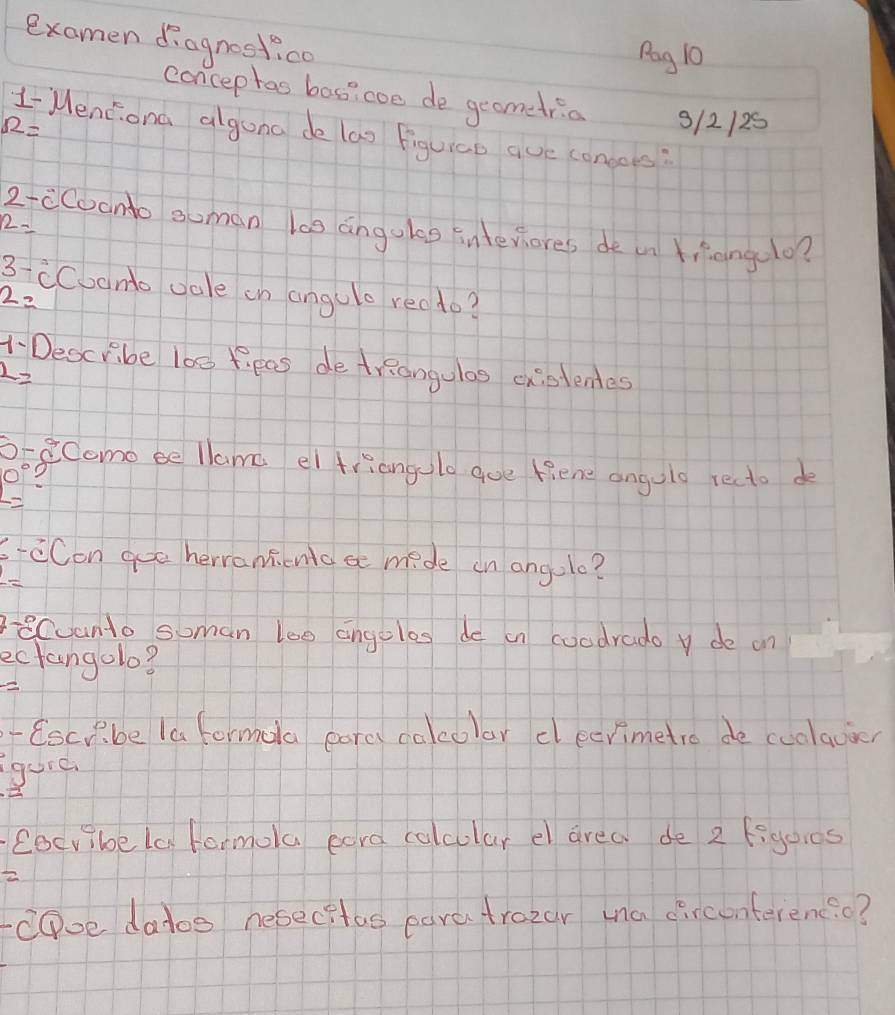 examen diagnostico
Pag 10
conceptos basicos de geometria
9/2/25
1- Menciona alguna de las figuras que conoces:
R=
2- ¿Cuanto suman los ángulos interiores de un triangulo?
R=
3- ¿Cuanto vale un angulo recto?
R=
4- Describe los tipos de triangulos existentes
R=
5- ¿Como se llama el triangulo que tiene angulo recto de
90°?
R=
6- ¿Con que herramienta se mide un angulo?
R=
7- ¿Cuanto suman los ángulos de un cuadrado y de un
rectangulo?
=
- Escribe la formula para calcular el perimetro de cualquier
figura
=
- Escribe la formula para calcular el área de 2 figuras
=
- ¿Que datos nesecitas para trazar una circunferencia?